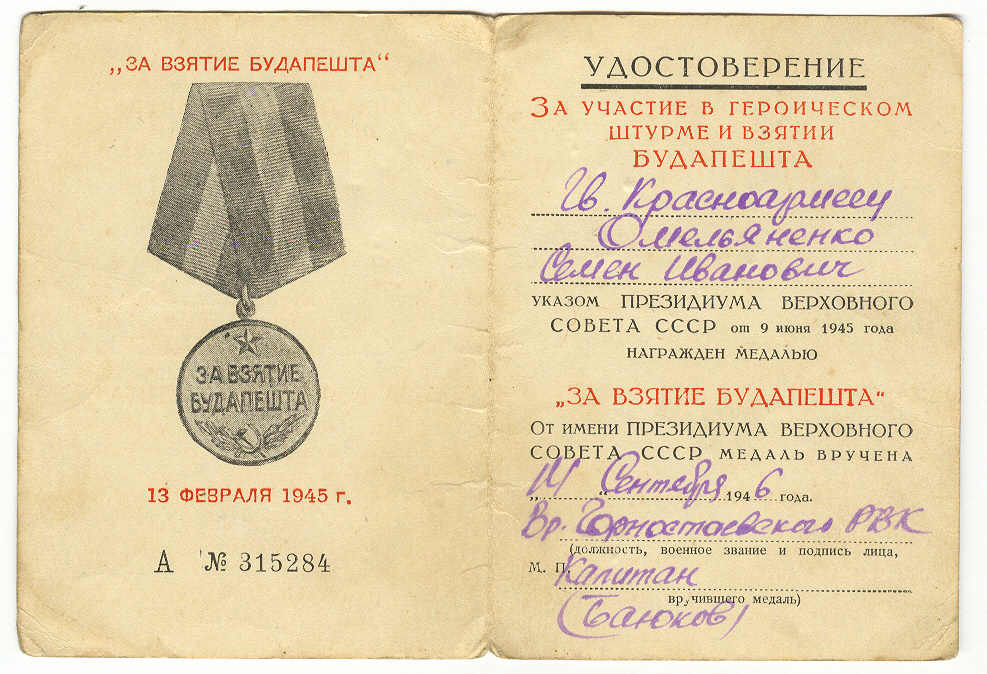 „ЗА ВЗЯТИЕ БУДАПЕШТА“
ЗА ВЗЯТИЕ
БУДАПЕШТА
13 ФЕВРАЛЯ 1945 г.
А № 315284
УДОСТОВЕРЕНИЕ
ЗА УЧАСТИЕ В ГЕРОИЧЕСКОМ
ШТУРМЕ И ВЗЯТИИ
БУДАПЕШТА
Гв. Красноармеец
Омельяненко
Семен Иванович
УКАЗОМ ПРЕЗИДИУМА ВЕРХОВНОГО
СОВЕТА СССР от 9 июня 1945 года
НАГРАЖДЕН МЕДАЛЬЮ
„ЗА ВЗЯТИЕ БУДАПЕШТА“
ОТ ИМЕНИ ПРЕЗИДИУМА ВЕРХОВНОГО
СОВЕТА СССР МЕДАЛЬ ВРУЧЕНА
„14“ Сентября 1946 года.
Вр. Горностаевского РВК
(должность, военное звание и подпись лица,
М. П. Капитан
вручившего медаль)
(Баюков)